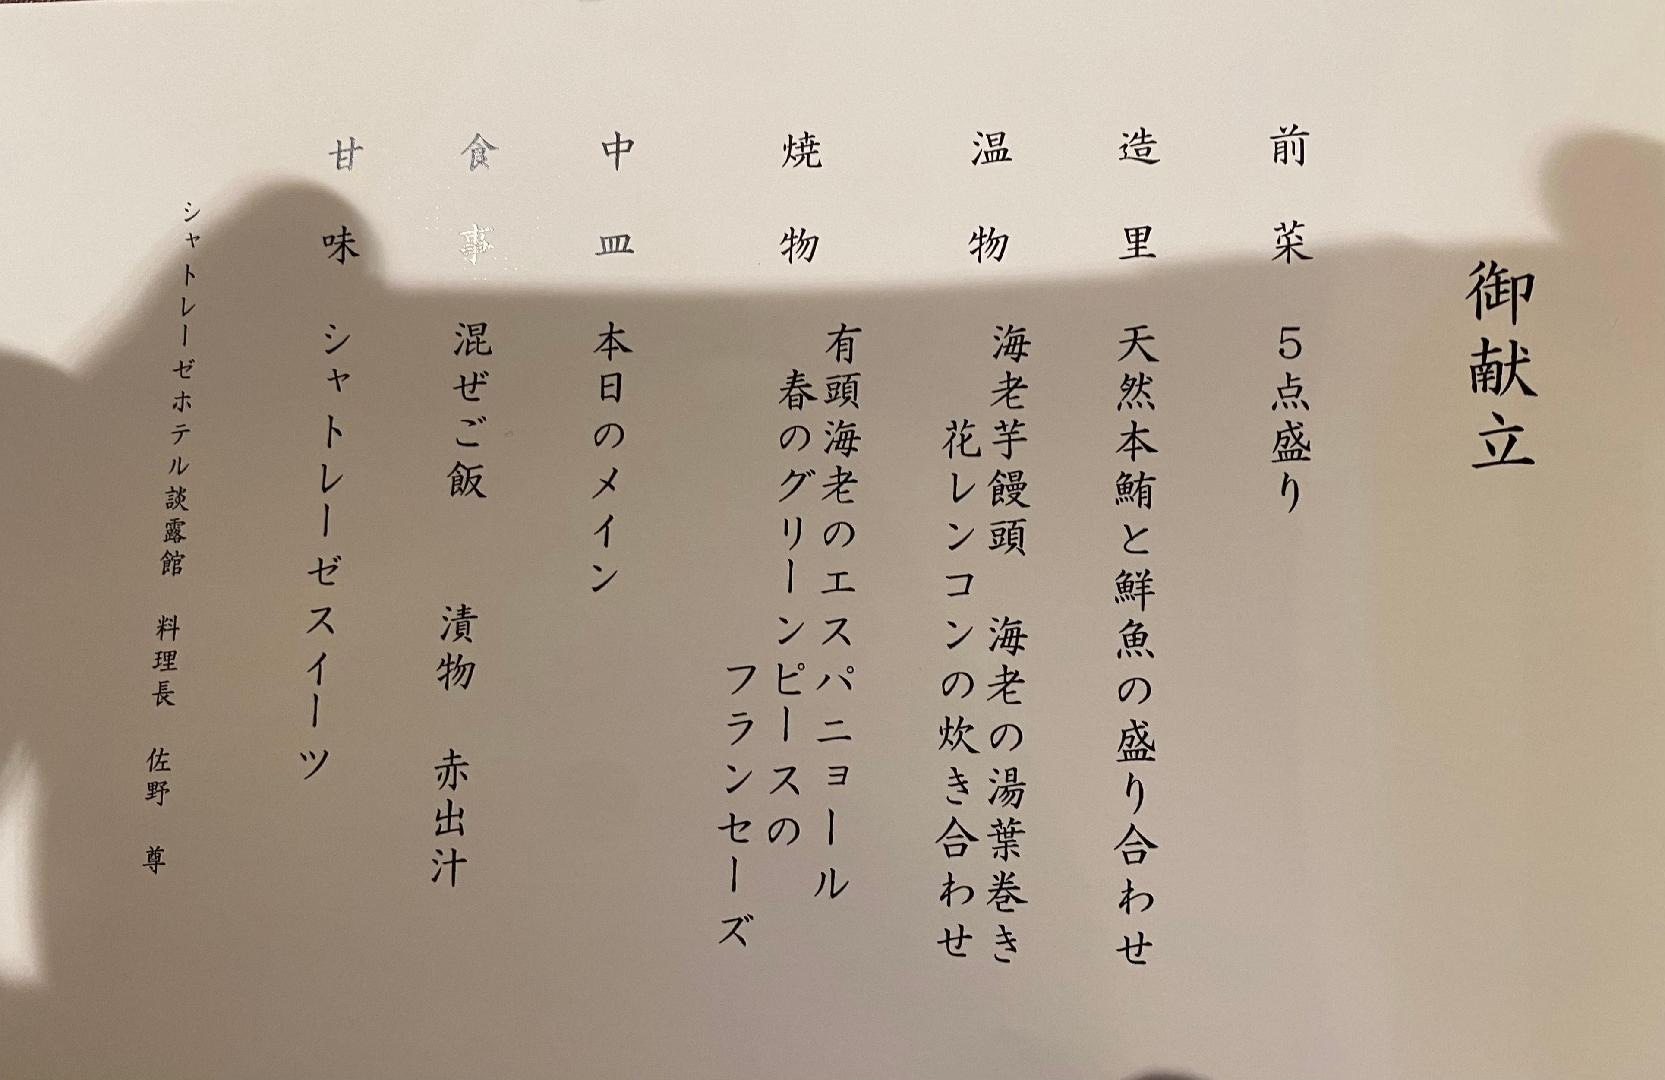 御献立
前菜 5点盛り
造里 天然本鮪と鮮魚の盛り合わせ
温物 海老芋饅頭 海老の湯葉巻き
花レンコンの炊き合わせ
焼物 有頭海老のエスパニョール
春のグリーンピースの
フランセーズ
中皿 本日のメイン
食事 混ぜご飯 漬物 赤出汁
甘味 シャトレーゼスイーツ
シャトレーゼホテル談露館 料理長 佐野 尊